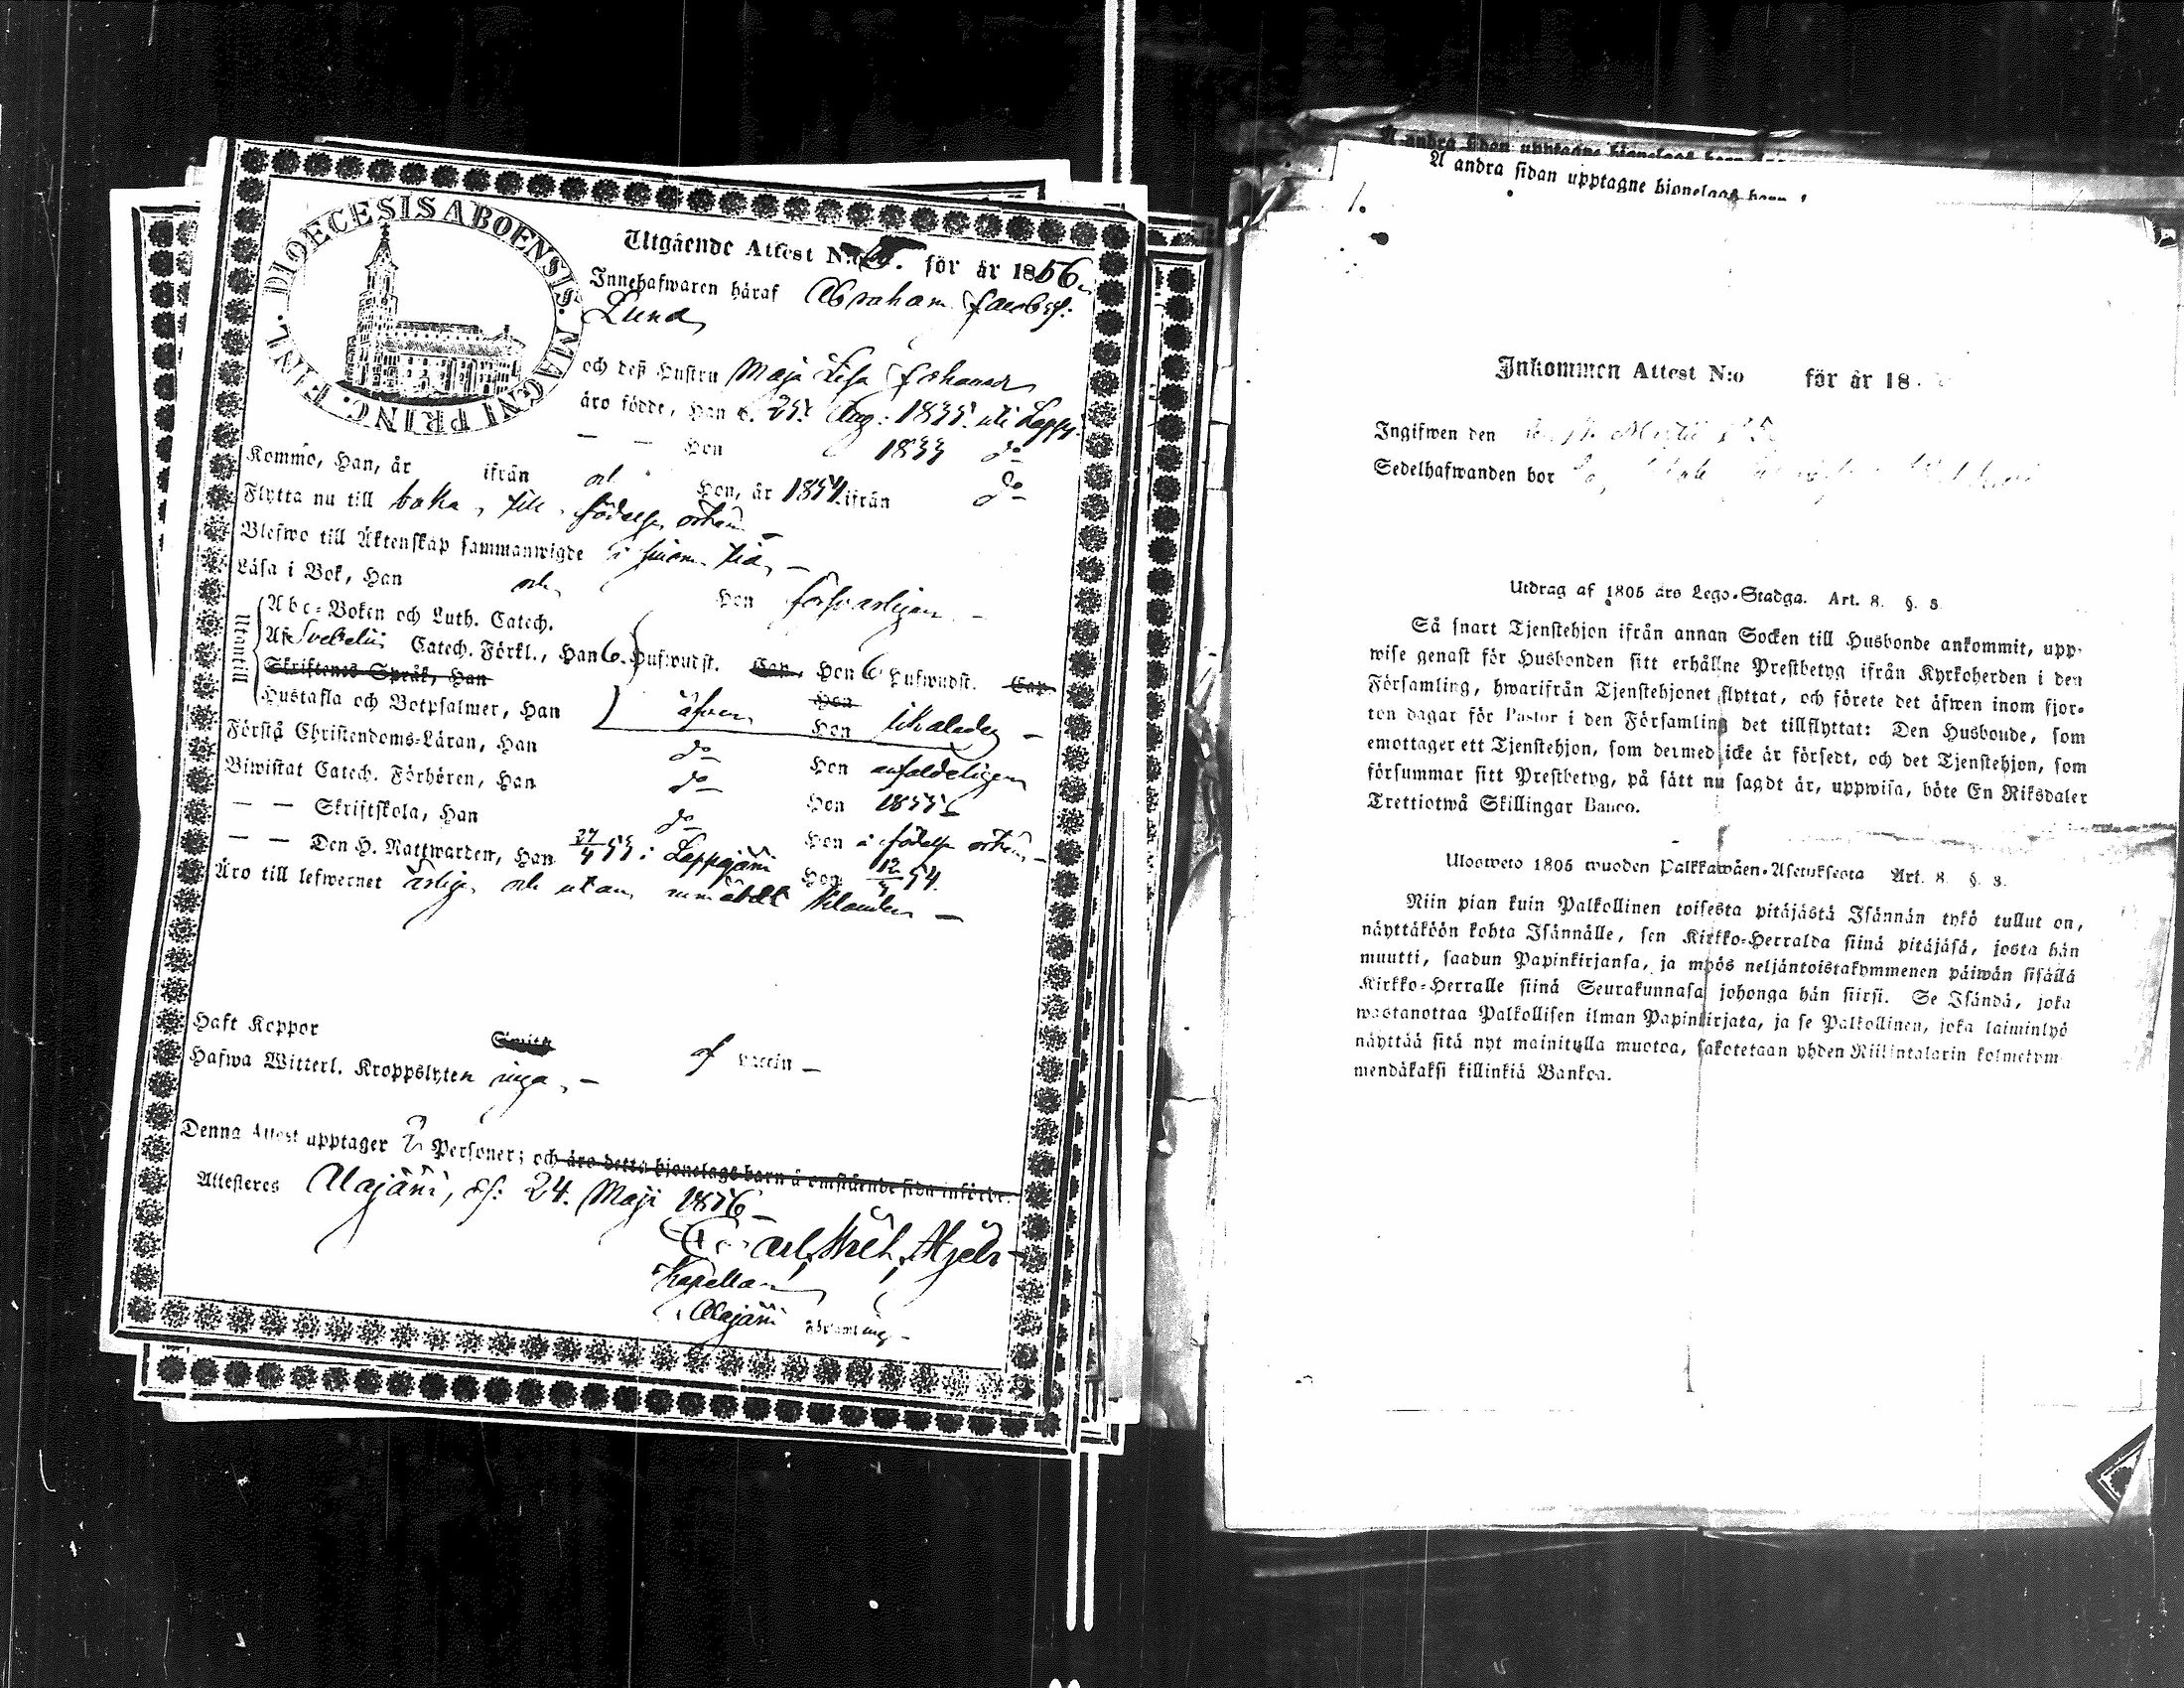 DIOECESIS ABOENSIS. MAGNI PRINC. FINL.
Utgående Attest N:o för år 1856.
Innehafwaren häraf Abraham Jacobsf:
Lund
och deß Hustru Maja Lisa Johansd
äro födde, Han d. 25. Aug: 1835. uti Lappf.
— — Hon 1833 do
Kommo, Han, år ifrån och Hon, år 1854 ifrån do
Flytta nu till baka, till födelse orten —
Blefwo till Äktenskap sammanwigde i sinom tid, —
Läsa i Bok, Han och Hon försvarligen —
Utantill
Abc-Boken och Luth. Catech.
Af Svebelii Catech. Förkl., Han 6. Hufwudst. Cap. Hon 6 Hufwudst. Cap.
Skriftenes Språk, Han Hon
Hustafla och Botpsalmer, Han äfven Hon likaledes —
Förstå Christendoms-Läran, Han do Hon enfaldeligen
Biwistat Catech. Förhören, Han do Hon 1855
— — Skriftskola, Han do Hon i födelse orten —
— — Den H. Nattwarden, Han 27/4 55 i Lappajärvi Hon 12/3 54.
Äro till lefwernet ärlige och utan anmäldt klander —
Haft Koppor af vaccin —
Hafwa Witterl. Kroppslyten inga, —
Denna Attest upptager 2 Personer; och äro detta hjonelags barn å omstående sida införde.
Attesteres Alajärvi, d. 24. Maji 1856 —
Carl Wilh.
Kapellan
i Alajärvi Församling —
Å andra sidan upptagne hjonelags barn
Å andra sidan upptagne hjonelags barn
1.
Inkommen Attest N:o för år 18
Ingifwen den
Sedelhafwanden bor
Utdrag af 1805 års Lego-Stadga. Art. 8. §. 3.
Så snart Tjenstehjon ifrån annan Socken till Husbonde ankommit, upp-
wise genast för Husbonden sitt erhållne Prestbetyg ifrån Kyrkoherden i den
Församling, hwarifrån Tjenstehjonet flyttat, och förete det äfwen inom fjor-
ton dagar för Pastor i den Församling det tillflyttat: Den Husbonde, som
emottager ett Tjenstehjon, som dermed icke är försedt, och det Tjenstehjon, som
försummar sitt Prestbetyg, på sätt nu sagdt är, uppwisa, böte En Riksdaler
Trettiotwå Skillingar Banco.
Ulosweto 1805 wuoden Palkkawäen-Asetuksesta Art. 8. §. 3.
Niin pian kuin Palkollinen toisesta pitäjästä Isännän tykö tullut on,
näyttäköön kohta Isännälle, sen Kirkko-Herralda siinä pitäjäsä, josta hän
muutti, saadun Papinkirjansa, ja myös neljäntoistakymmenen päiwän sisällä
Kirkko-Herralle siinä Seurakunnasa johonga hän siirsi. Se Isändä, joka
wastanottaa Palkollisen ilman Papinkirjata, ja se Palkollinen, joka laiminlyö
näyttää sitä nyt mainitulla muotoa, sakotetaan yhden Riikintalarin kolmekym-
mendäkaksi killinkiä Bankoa.